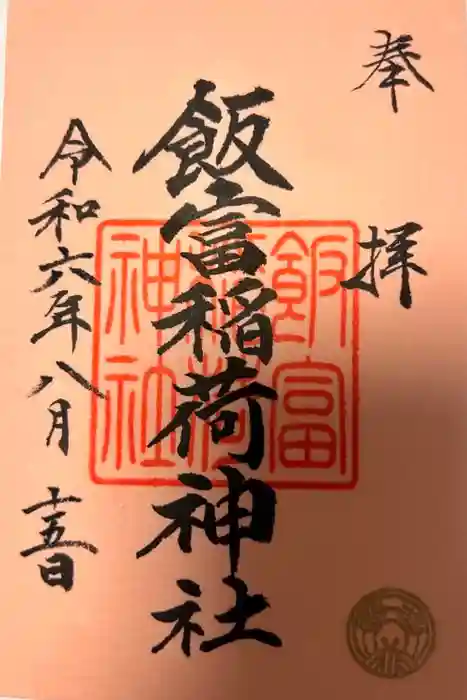 奉拝
飯富稲荷神社
飯富稲荷神社
令和六年八月十五日